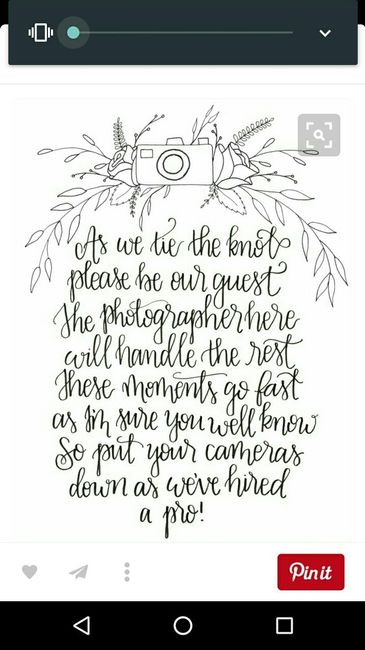 As we tie the knot
please be our guest
the photographer here
will handle the rest
These moments go fast
as I'm sure you well know
So put your cameras
down as we've hired
a pro!
Pinit